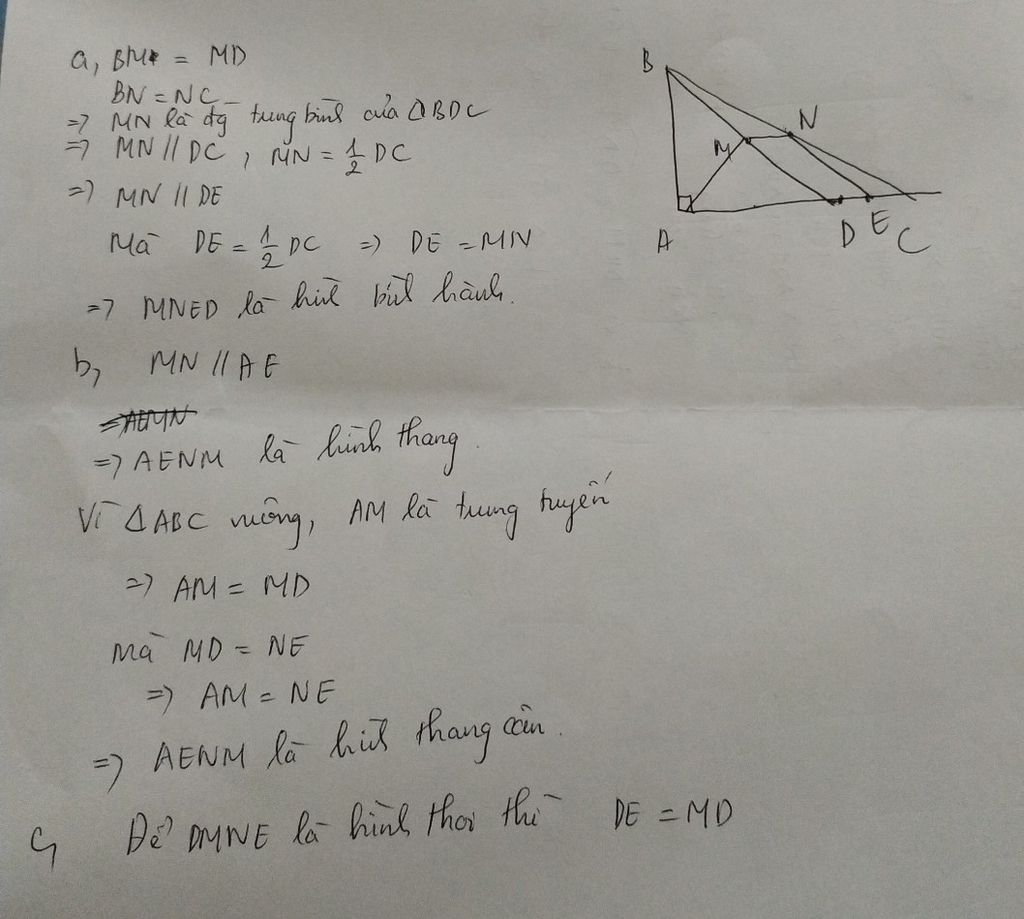 a, BM = MD
BN = NC
=> MN là đg trung bình của ΔBDC
=> MN // DC , MN = 1/2 DC
=> MN // DE
Mà DE = 1/2 DC => DE = MN
=> MNED là hình bình hành.
b, MN // AE
=> AEMN
=> AENM là hình thang.
Vì ΔABC vuông, AM là trung tuyến
=> AM = MD
mà MD = NE
=> AM = NE
=> AENM là hình thang cân.
c, Để DMNE là hình thoi thì DE = MD
B
N
M
A
D
E
C